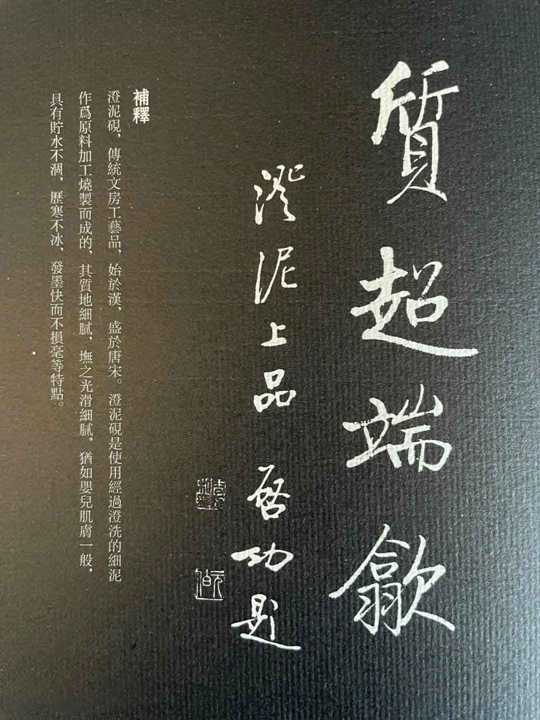 質超端歙
澄泥上品 啓功題
補釋
澄泥硯，傳統文房工藝品，始於漢，盛於唐宋。澄泥硯是使用經過澄洗的細泥
作爲原料加工燒製而成的，其質地細膩，撫之光滑細膩，猶如嬰兒肌膚一般，
具有貯水不涸，歷寒不冰，發墨快而不損毫等特點。